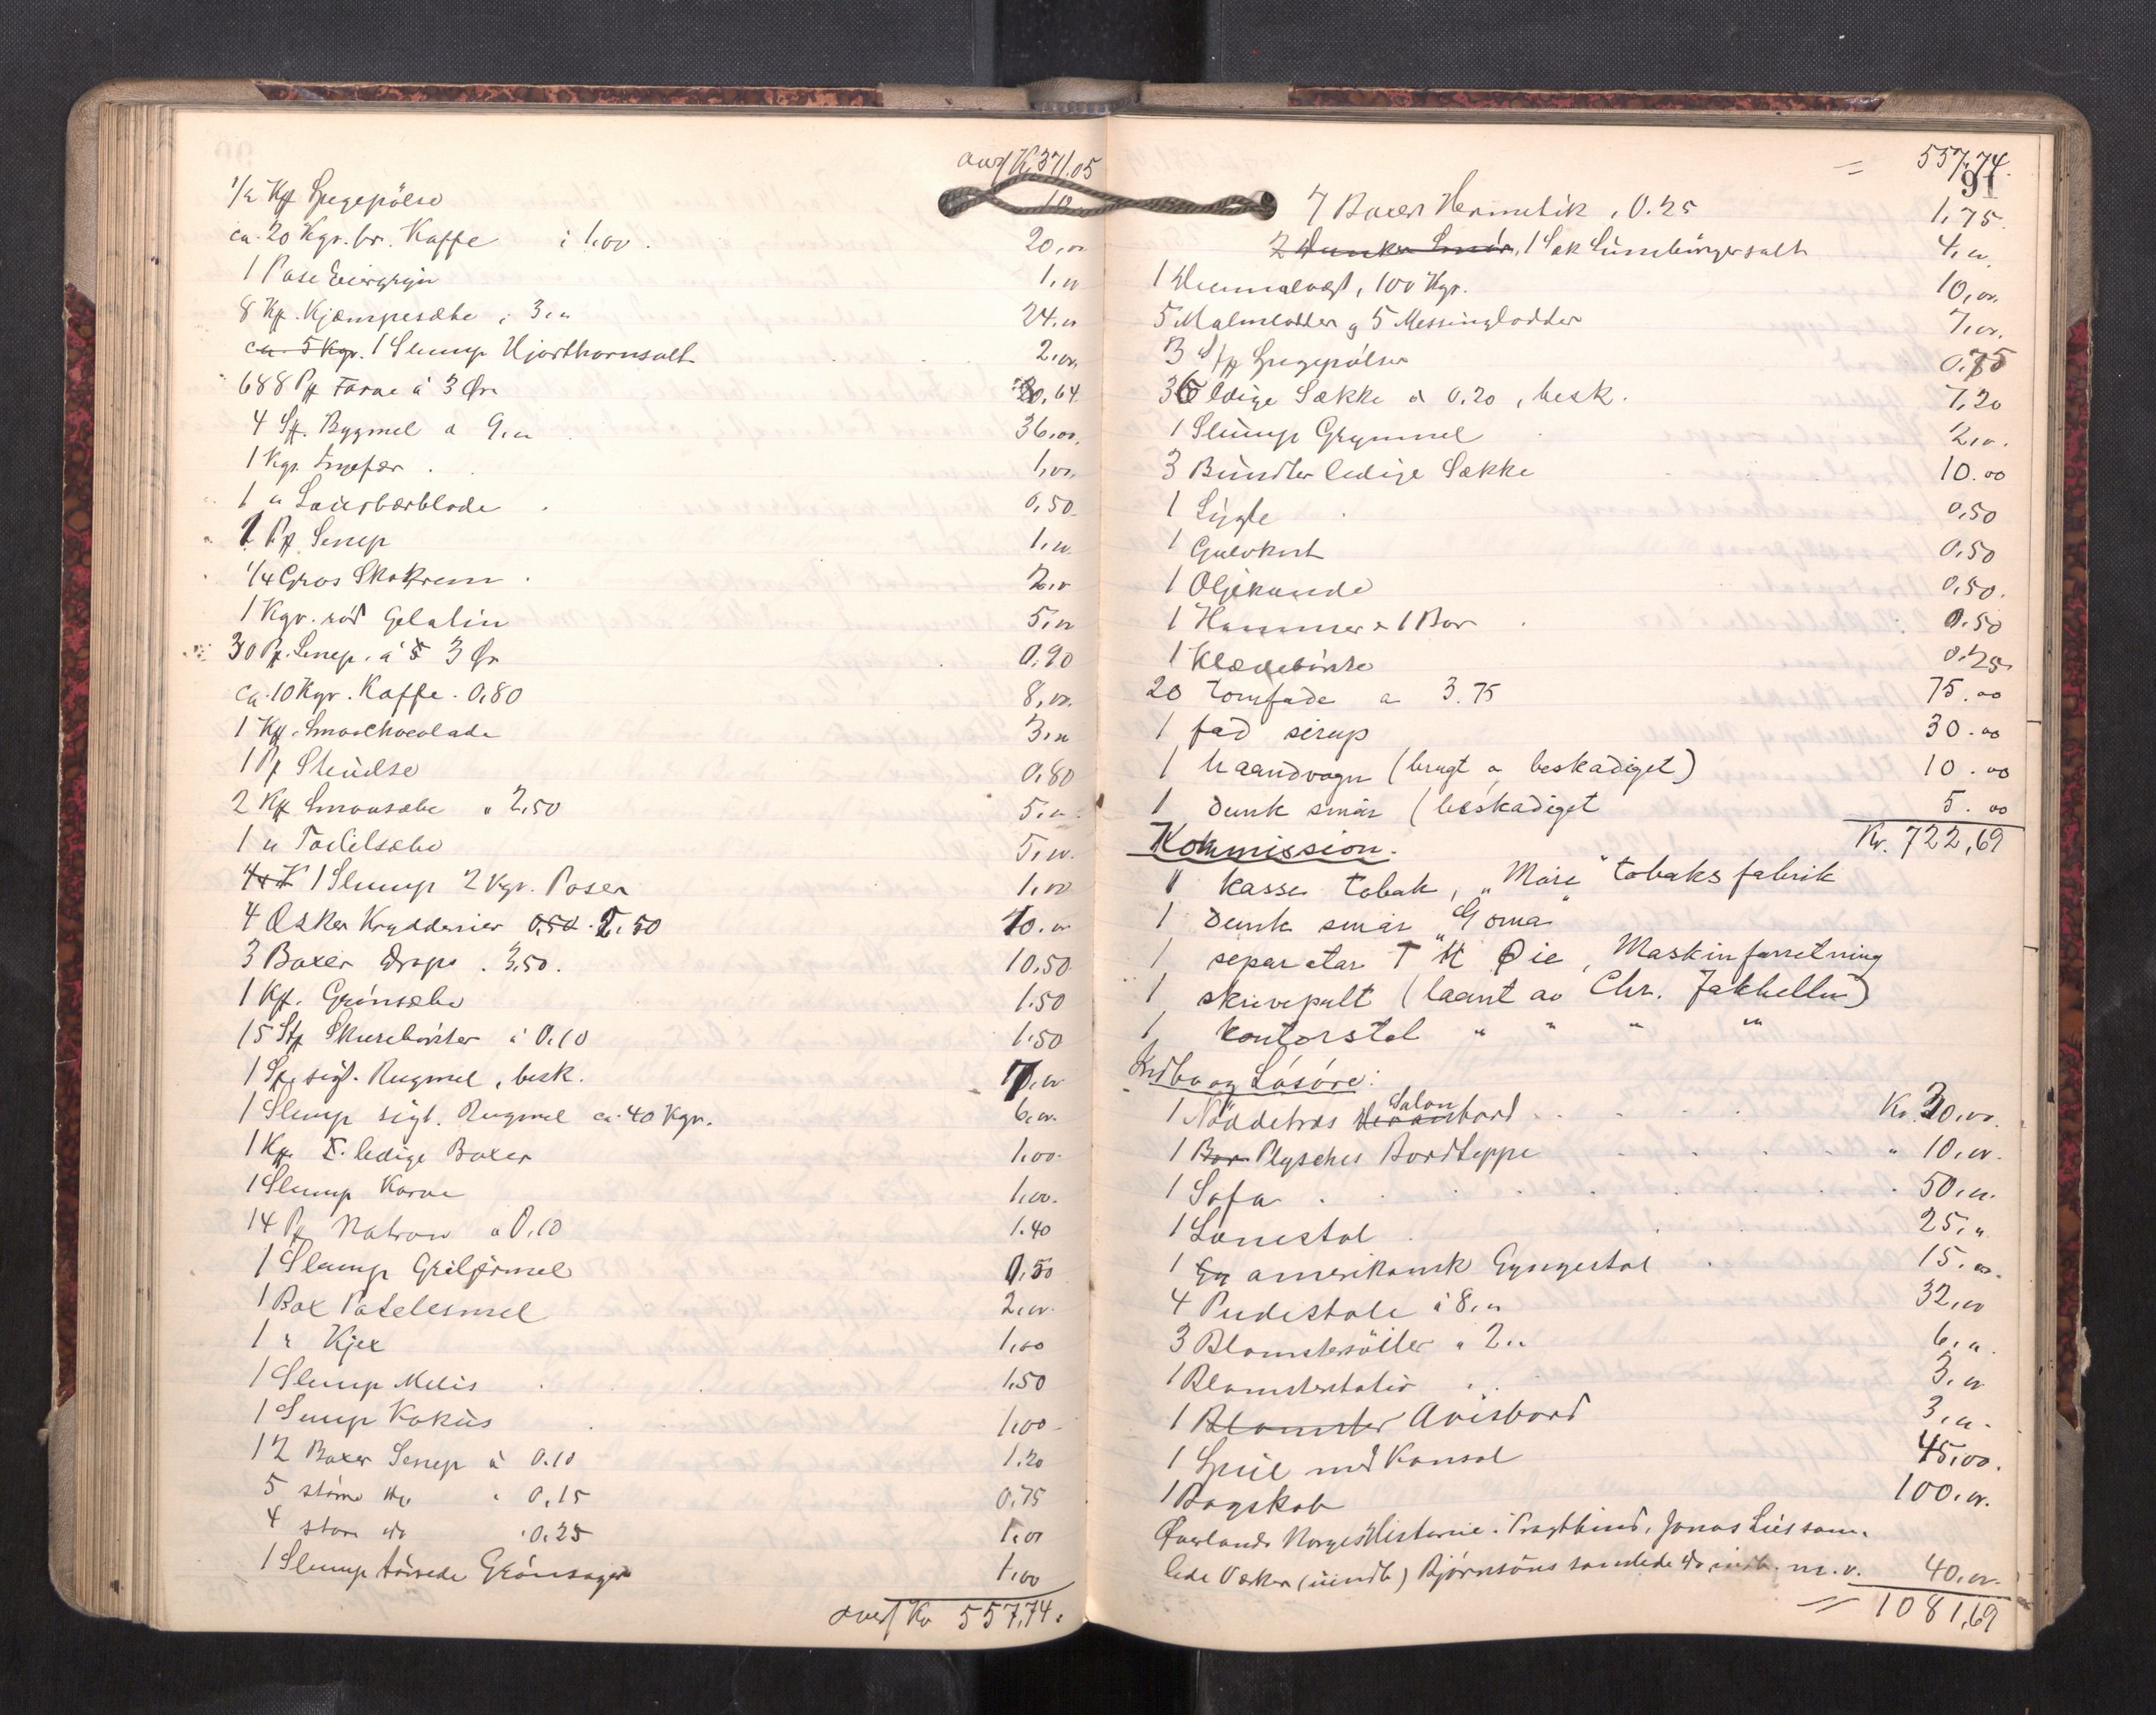 overf Kr. 371.05
1/2 Kſſ Spegepölse 10
ca. 20 Kgr. br. Kaffe à 1.00. 20,00
1 Pose 1,00
8 Kſſ. Kjæmpesæbe à 3,00 24,00
ca. 5 Kgr. 1 Slump Hjorthornsalt 2,00
688 Pſſ Farve à 3 Øre 20,64
4 Sſſ. Bygmel a 9,00 36,00
1 Kgr. Ingefær 1,00
1 " Laurbærblade 0,50
1 Pſſ Senep 1,00
1/4 Gros Skokrem 2,00
1 Kgr. röd Gelatin 5,00
30 Pſſ. Senep. à 5 3 Øre 0,90
ca. 10 Kgr. Kaffe. 0,80 8,00
1 Kſſ. Smaachocolade 3,00
1 Pſſ Stivelse 0,80
2 Kſſ Smaasæbe a 2,50 5,00
1 " Toiletsæbe 5,00
1 Slump 2 Kgr. Poser 1,00
4 Æsker Krydderier 0,50. 2.50 10,00
3 Boxer Drops. 3,50. 10,50
1 Kſſ. Grönsæbe 1.50
15 Stſſ Skurebörster à 0.10 1.50
1 Sſſ. sigt. Rugmel, besk. 7,00
1 Slump sigt. Rugmel ca. 40 Kgr. 6,00
1 Kſſ. ledige Boxer 1.00
1 Slump Korve 1,00
14 Pſſ Natron a 0.10 1.40
1 Slump Griljermel 0,50
1 Box Potetesmel 2,00
1 " Kjex 1,00
1 Slump Melis 1,50
1 Sump Kokus 1,00
12 Boxer Senep à 0.10 1.20
5 større do " 0,15 0,75
4 store do " 0.25 1,00
1 Slump törrede Grönsager 1,00
overf Kr 557,74.
= 557,74.
91
7 Boxer Hermetik, 0.25 1,75
2 Dunker Smör, 1 Sæk Lüneburgersalt 4,00
1 Decimalvægt, 100 Kgr. 10,00
5 Malmlodder og 5 Messinglodder 7,00
3 Stſſ Spegepölser 0,75
36 ledige Sække a 0.20, besk. 7,20
1 Slump Grynmel 2,00
3 Bundter ledige Sække 10.00
1 Lygte 0,50
1 Gulvkost 0,50
1 Oljekande 0,50
1 Hammer & 1 Bor 0.50
1 Klædebörste 0,25
20 tomfade a 3.75 75.00
1 fad sirup 30.00
1 haandvogn (brugt og beskadiget) 10.00
1 dunk smör (beskadiget 5.00
Kr. 722,69
Kommission.
1 kasse tobak, „Möre" tobaksfabrik
1 dunk smör „Goma"
1 separator T M Øie, Maskinforretning
1 skrivepult (laant av Chr. Jakhelln)
1 kontorstol " " " "
Indbo og Lösöre:
1 Nöddetræs Salonbord Kr. 30,00
1 Bor Plysches Bordteppe " 10,00
1 Sofa 50,00
1 Lænestol 25,"
1 Gy amerikansk Gyngestol 15,00
4 Pudestole à 8,00 32,00
3 Blomstersöiler a 2,00 6,"
1 Blomsterstativ 3,00
1 Blomster Avisbord 3,00
1 Speil med Konsol 45,00.
1 Bogskab 100,00
Øverlands Norges Historie i Pragtbind, Jonas Lies sam-
lede Værker (uindb) Bjørnsöns samlede do indb. m.v. 40,00
= 1081,69